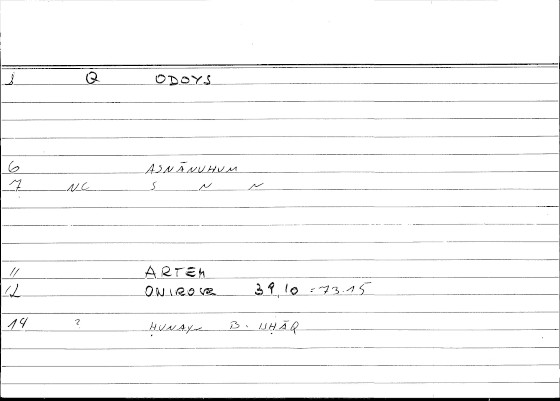 1 Q ODOYS
6 AJNĀNUHUM
7 NC S N N
11 ARTEM
12 ONIROCR 39,10 = 73.15
14 ? ḤUNAYN B. ISḤĀQ